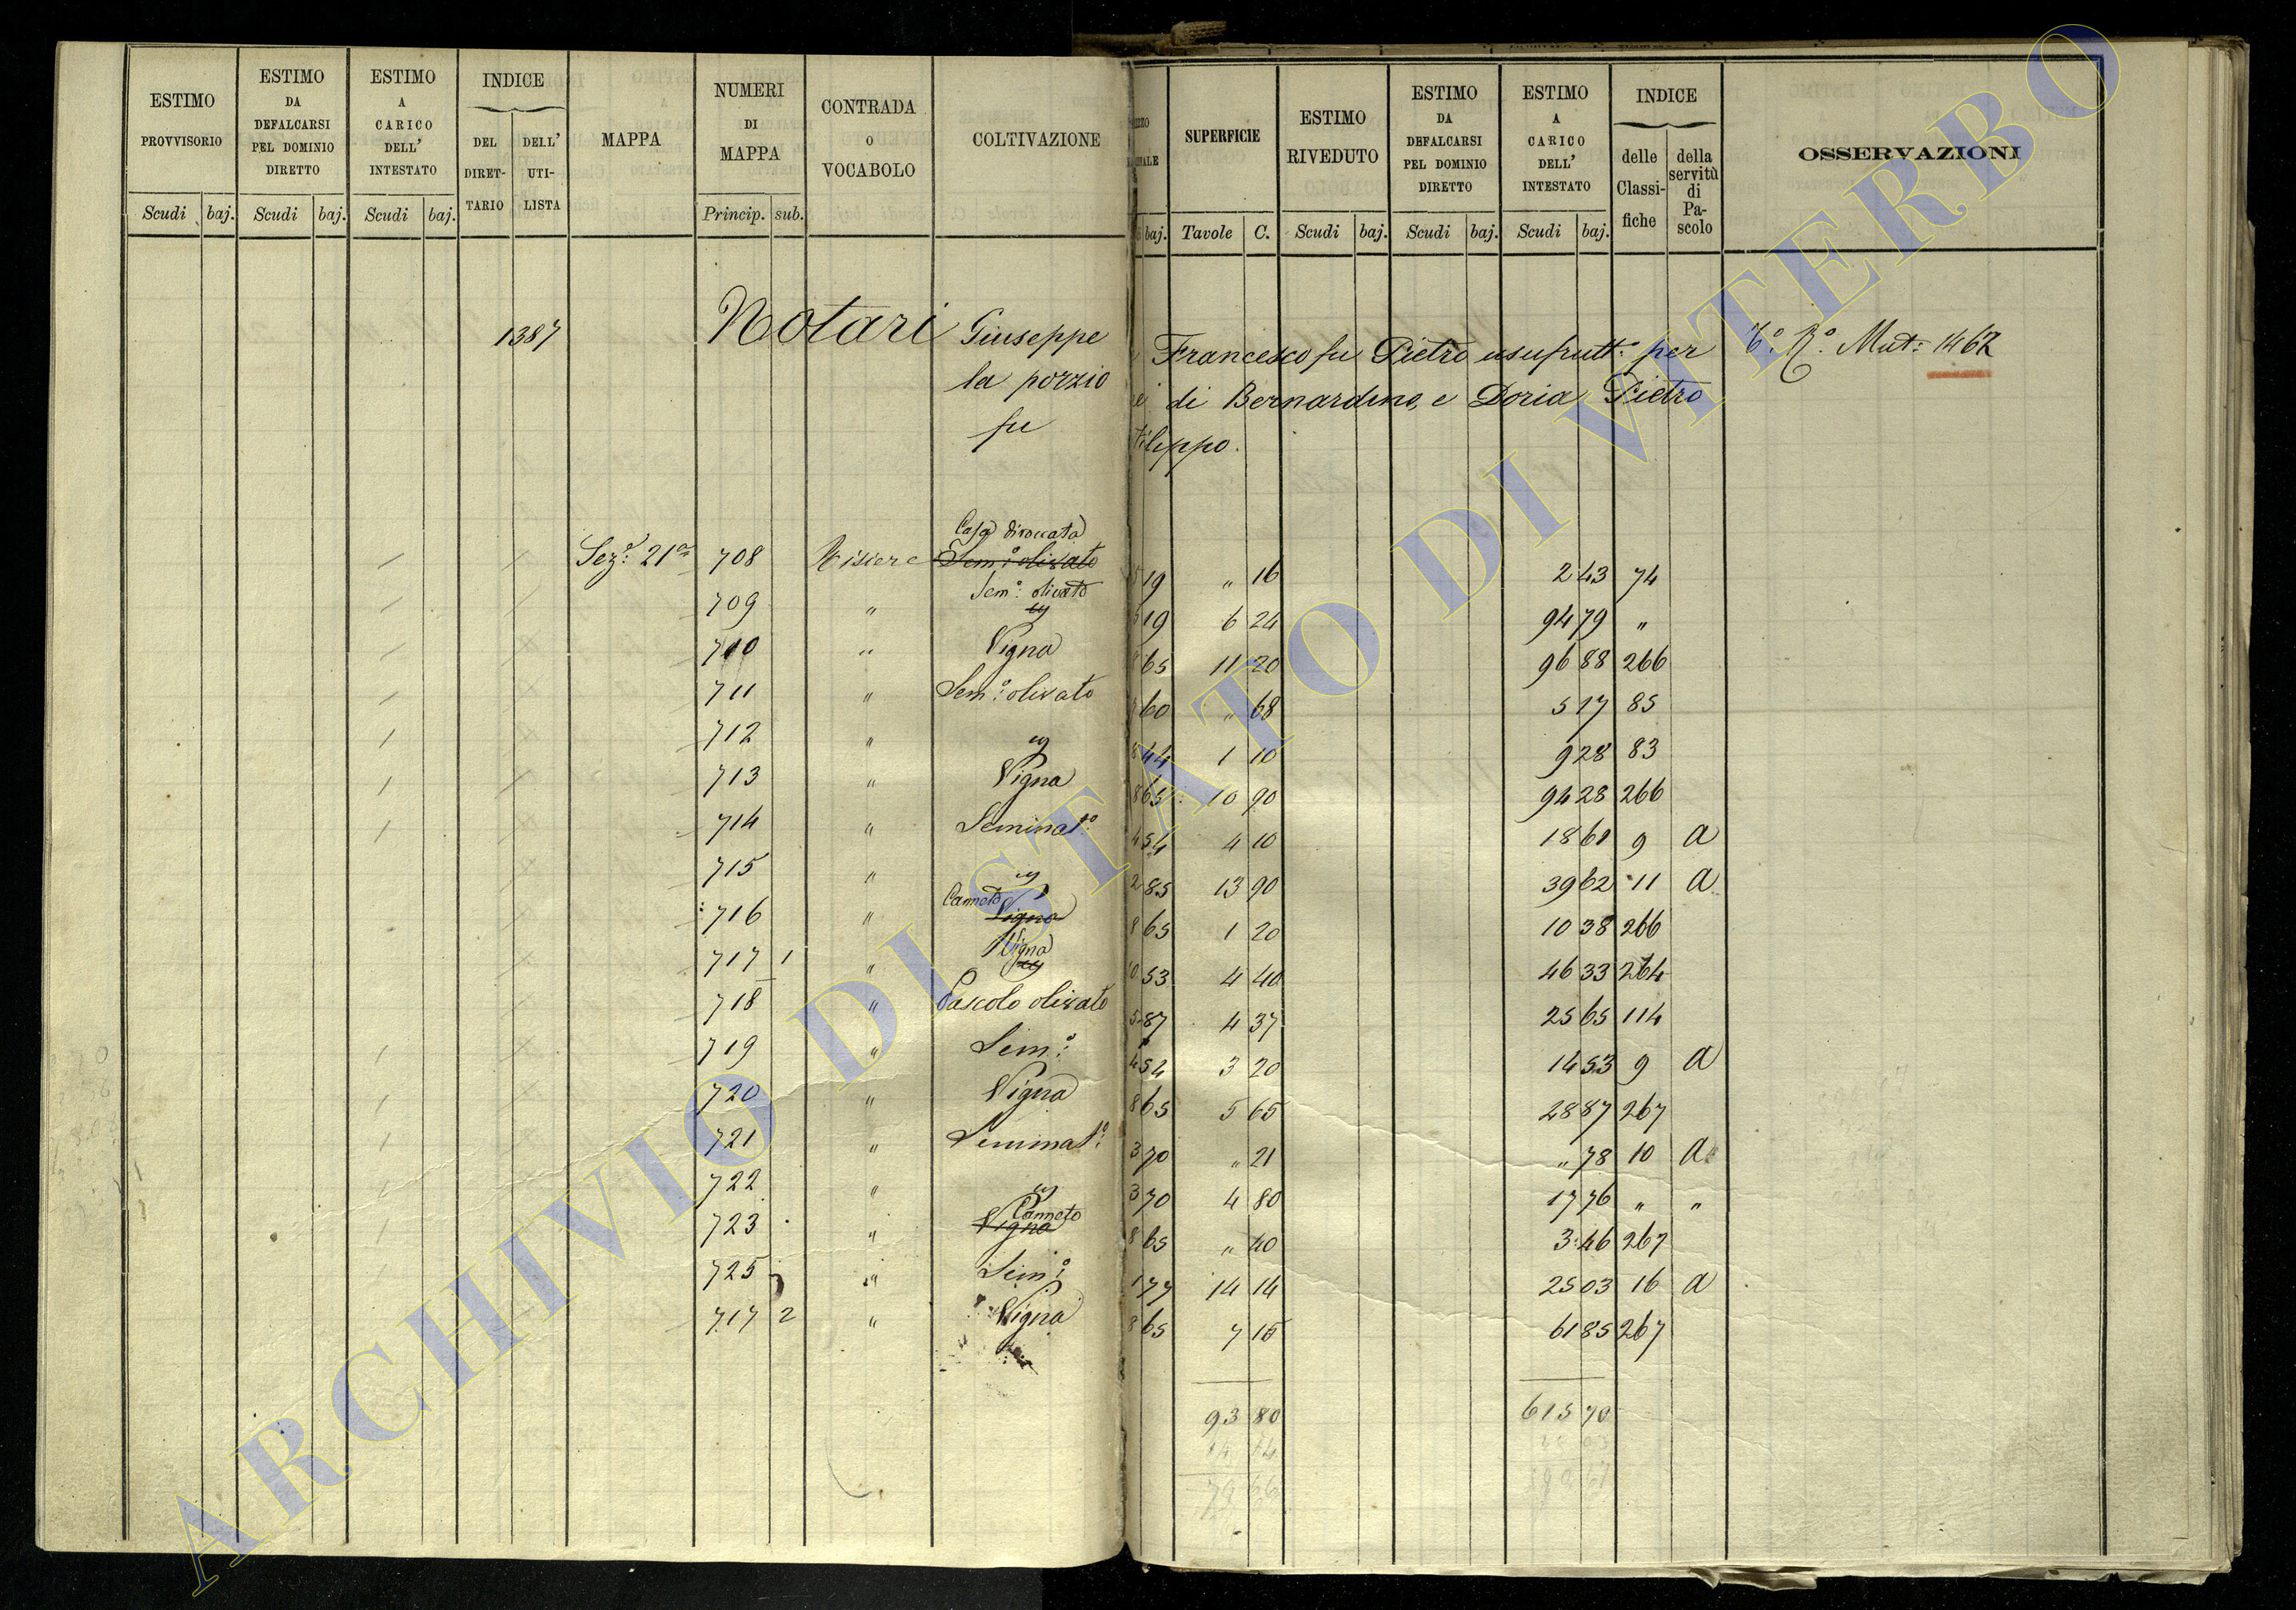 ESTIMO PROVVISORIO Scudi baj.
ESTIMO DA DEFALCARSI PEL DOMINIO DIRETTO Scudi baj.
ESTIMO A CARICO DELL' INTESTATO Scudi baj.
INDICE DEL DIRETTARIO DELL' UTILISTA
MAPPA
NUMERI DI MAPPA Princip. sub.
CONTRADA O VOCABOLO
COLTIVAZIONE
baj.
SUPERFICIE Tavole C.
ESTIMO RIVEDUTO Scudi baj.
ESTIMO DA DEFALCARSI PEL DOMINIO DIRETTO Scudi baj.
ESTIMO A CARICO DELL' INTESTATO Scudi baj.
INDICE delle Classifiche della servitù di Pascolo
OSSERVAZIONI
1387 Notari Giuseppe Francesco fu Pietro usufrutt: per Mut: 1462
la porzio di Bernardino, e Doria Pietro
fu lippo.
Casa diroccata
Sez: 21a 708 Semo: olivato 19 " 16 2 43 74
709 " Semo: olivato 19 6 24 94 79 "
710 " Vigna 65 11 20 96 88 266
711 " Semo: olivato 60 " 68 5 17 85
712 " 44 1 10 9 28 83
713 " Vigna 8 65 10 90 94 28 266
714 " Seminato: 4 54 4 10 18 61 9 a
715 " 2 85 13 90 39 62 11 a
716 " Canneto Vigna 8 65 1 20 10 38 266
717 1 " Vigna 10 53 4 40 46 33 264
718 " Pascolo olivato 5 87 4 37 25 65 114
719 " Semo: 4 54 3 20 14 53 9 a
720 " Vigna 8 65 5 65 28 87 267
721 " Seminato: 3 70 " 21 " 78 10 a
722 " 3 70 4 80 17 76 " "
723 " Canneto Vigna 8 65 " 40 3 46 267
725 " Semo: 1 77 14 14 25 03 16 a
717 2 " Vigna 8 65 7 15 61 85 267
93 80 615 70
14 14
79 66
ARCHIVIO DI STATO DI VITERBO